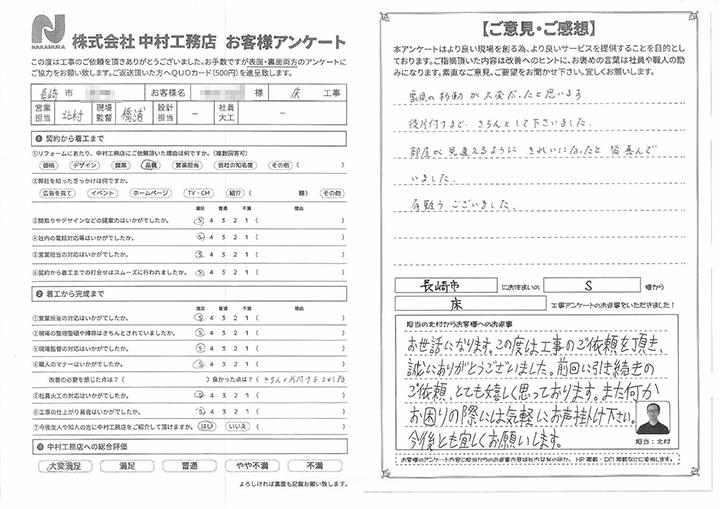 NAKAMURA
株式会社 中村工務店 お客様アンケート
この度は工事のご依頼を頂きありがとうございました。お手数ですが表面・裏面両方のアンケートに
ご協力をお願い致します。ご返送頂いた方へQUOカード(500円)を進呈致します。
長崎 市 お客様名 様 床 工事
営業担当 北村 現場監督 橋浦 設計担当 - 社員大工 -
❶ 契約から着工まで
①リフォームにあたり、中村工務店にご依頼頂いた理由は何ですか。(複数回答可)
価格 デザイン 提案 品質 営業担当 会社の知名度 その他( )
②弊社を知ったきっかけは何ですか。
広告を見て イベント ホームページ TV・CM 紹介( 様) その他
満足 普通 不満 理由
③間取りやデザインなどの提案力はいかがでしたか。 5 4 3 2 1 ( )
④社内の電話対応等はいかがでしたか。 5 4 3 2 1 ( )
⑤営業担当の対応はいかがでしたか。 5 4 3 2 1 ( )
⑥契約から着工までの打合せはスムーズに行われましたか。 5 4 3 2 1 ( )
❷ 着工から完成まで
満足 普通 不満 理由
①営業担当の対応はいかがでしたか。 5 4 3 2 1 ( )
②現場の整理整頓や掃除はきちんとされていましたか。 5 4 3 2 1 ( )
③現場監督の対応はいかがでしたか。 5 4 3 2 1 ( )
④職人のマナーはいかがでしたか。 5 4 3 2 1 ( )
改善の必要を感じた点は?( ) 良かった点は?( きちんと片付け )
⑤社員大工の対応はいかがでしたか。 5 4 3 2 1 ( )
⑥工事の仕上がり具合はいかがでしたか。 5 4 3 2 1 ( )
⑦今後友人や知人の方に中村工務店をご紹介して頂けますか。 はい いいえ ( )
❸ 中村工務店への総合評価
大変満足 満足 普通 やや不満 不満
よろしければ裏面も記載お願い致します。
【ご意見・ご感想】
本アンケートはより良い現場を創る為、より良いサービスを提供することを目的とし
ております。ご指摘頂いた内容は改善へのヒントに、お褒めの言葉は社員や職人の励
みになります。素直なご意見、ご要望をお聞かせ下さい。宜しくお願いします。
家具の移動が大変だったと思います
後片付けまで きちんとして下さいました。
部屋が見違えるように きれいになったと 皆喜んで
いました。
有難う ございました。
長崎市 にお住まいの S 様から
床 工事アンケートのお返事をいただきました!
担当の北村からお客様へのお返事
お世話になります。この度は工事のご依頼を頂き、
誠にありがとうございました。前回に引き続きの
ご依頼、とても嬉しく思っております。また何か
お困りの際には気軽にお声掛け下さい。
今後とも宜しくお願いします。
担当:北村